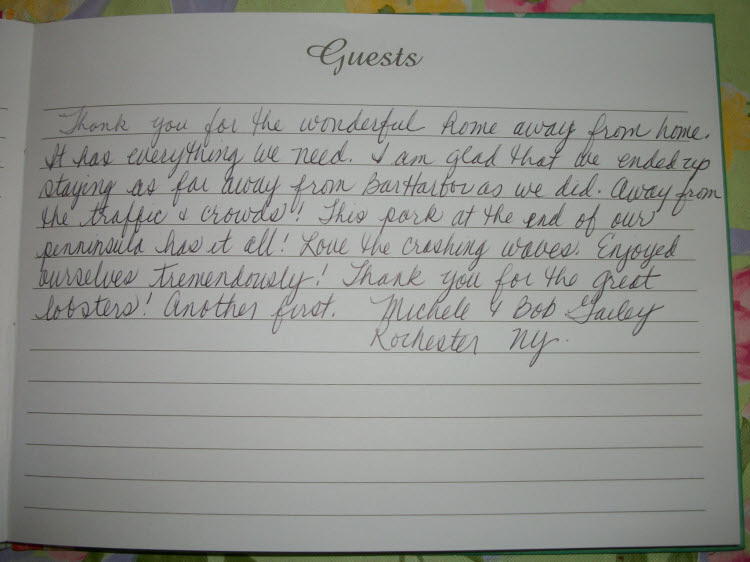 Guests
Thank you for the wonderful home away from home.
It has everything we need. I am glad that we ended up
staying as far away from BarHarbor as we did. Away from
the traffic & crowds! This park at the end of our
penninsula has it all! Love the crashing waves. Enjoyed
ourselves tremendously! Thank you for the great
lobsters! Another first. Michele & Bob Gailey
Rochester NY.